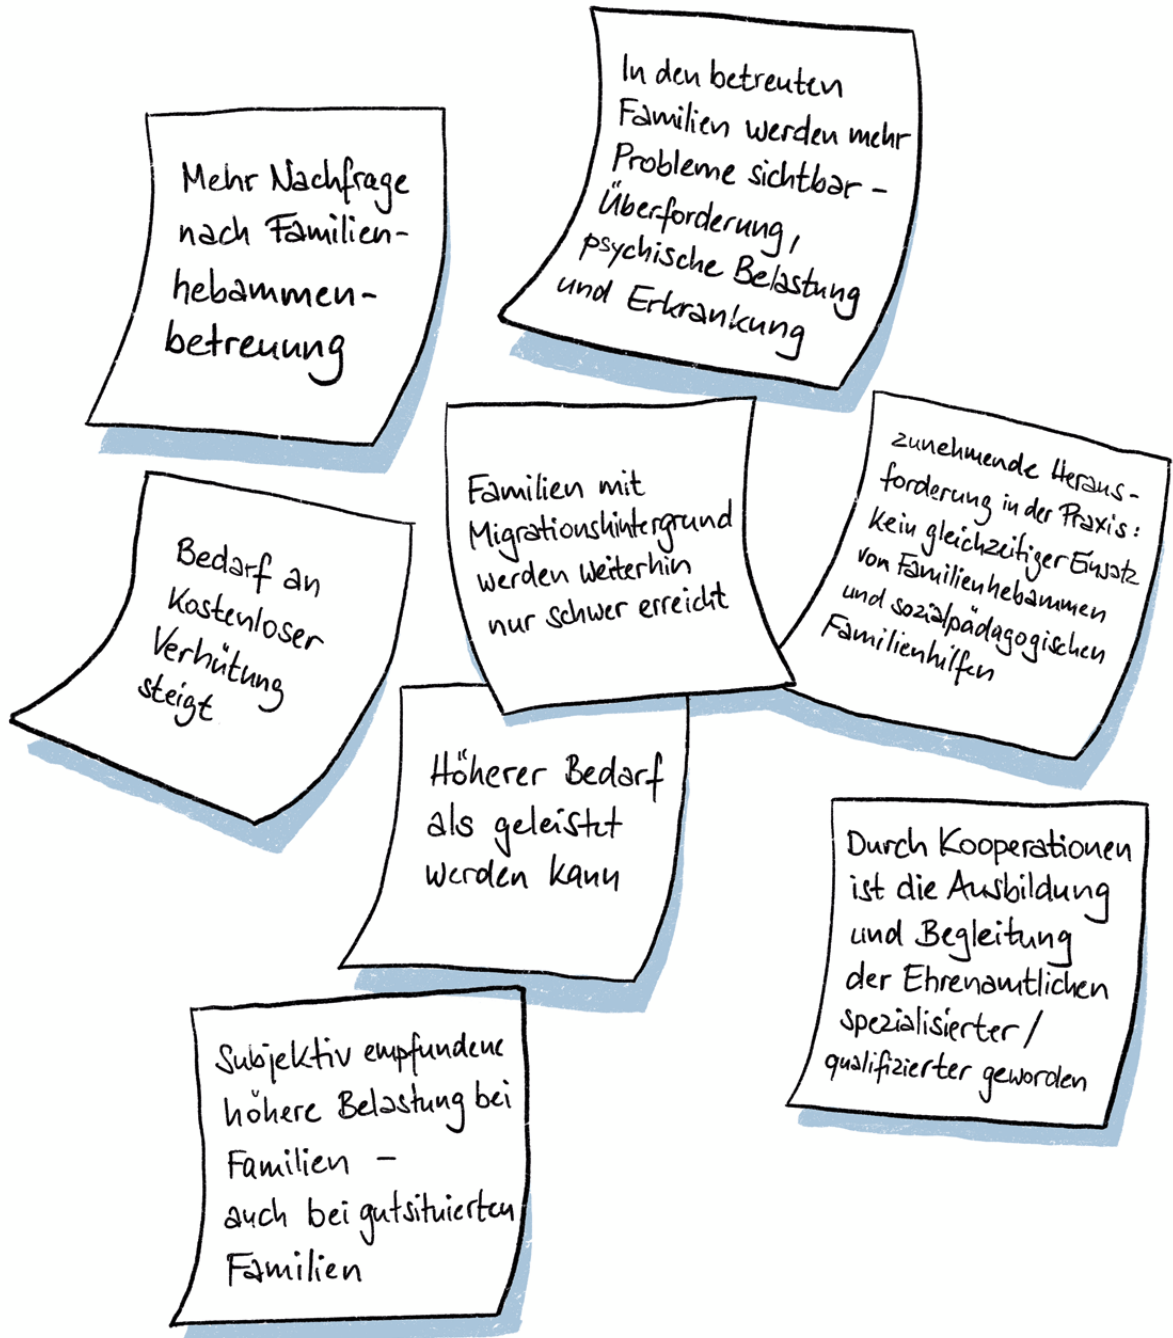 Mehr Nachfrage
nach Familien-
hebammen-
betreuung
In den betreuten
Familien werden mehr
Probleme sichtbar -
Überforderung,
psychische Belastung
und Erkrankung
Bedarf an
Kostenloser
Verhütung
steigt
Familien mit
Migrationshintergrund
werden weiterhin
nur schwer erreicht
zunehmende Heraus-
forderung in der Praxis:
Kein gleichzeitiger Einsatz
von Familienhebammen
und sozialpädagogischen
Familienhilfen
Höherer Bedarf
als geleistet
werden kann
Durch Kooperationen
ist die Ausbildung
und Begleitung
der Ehrenamtlichen
spezialisierter/
qualifizierter geworden
Subjektiv empfundene
höhere Belastung bei
Familien -
auch bei gutsituierten
Familien